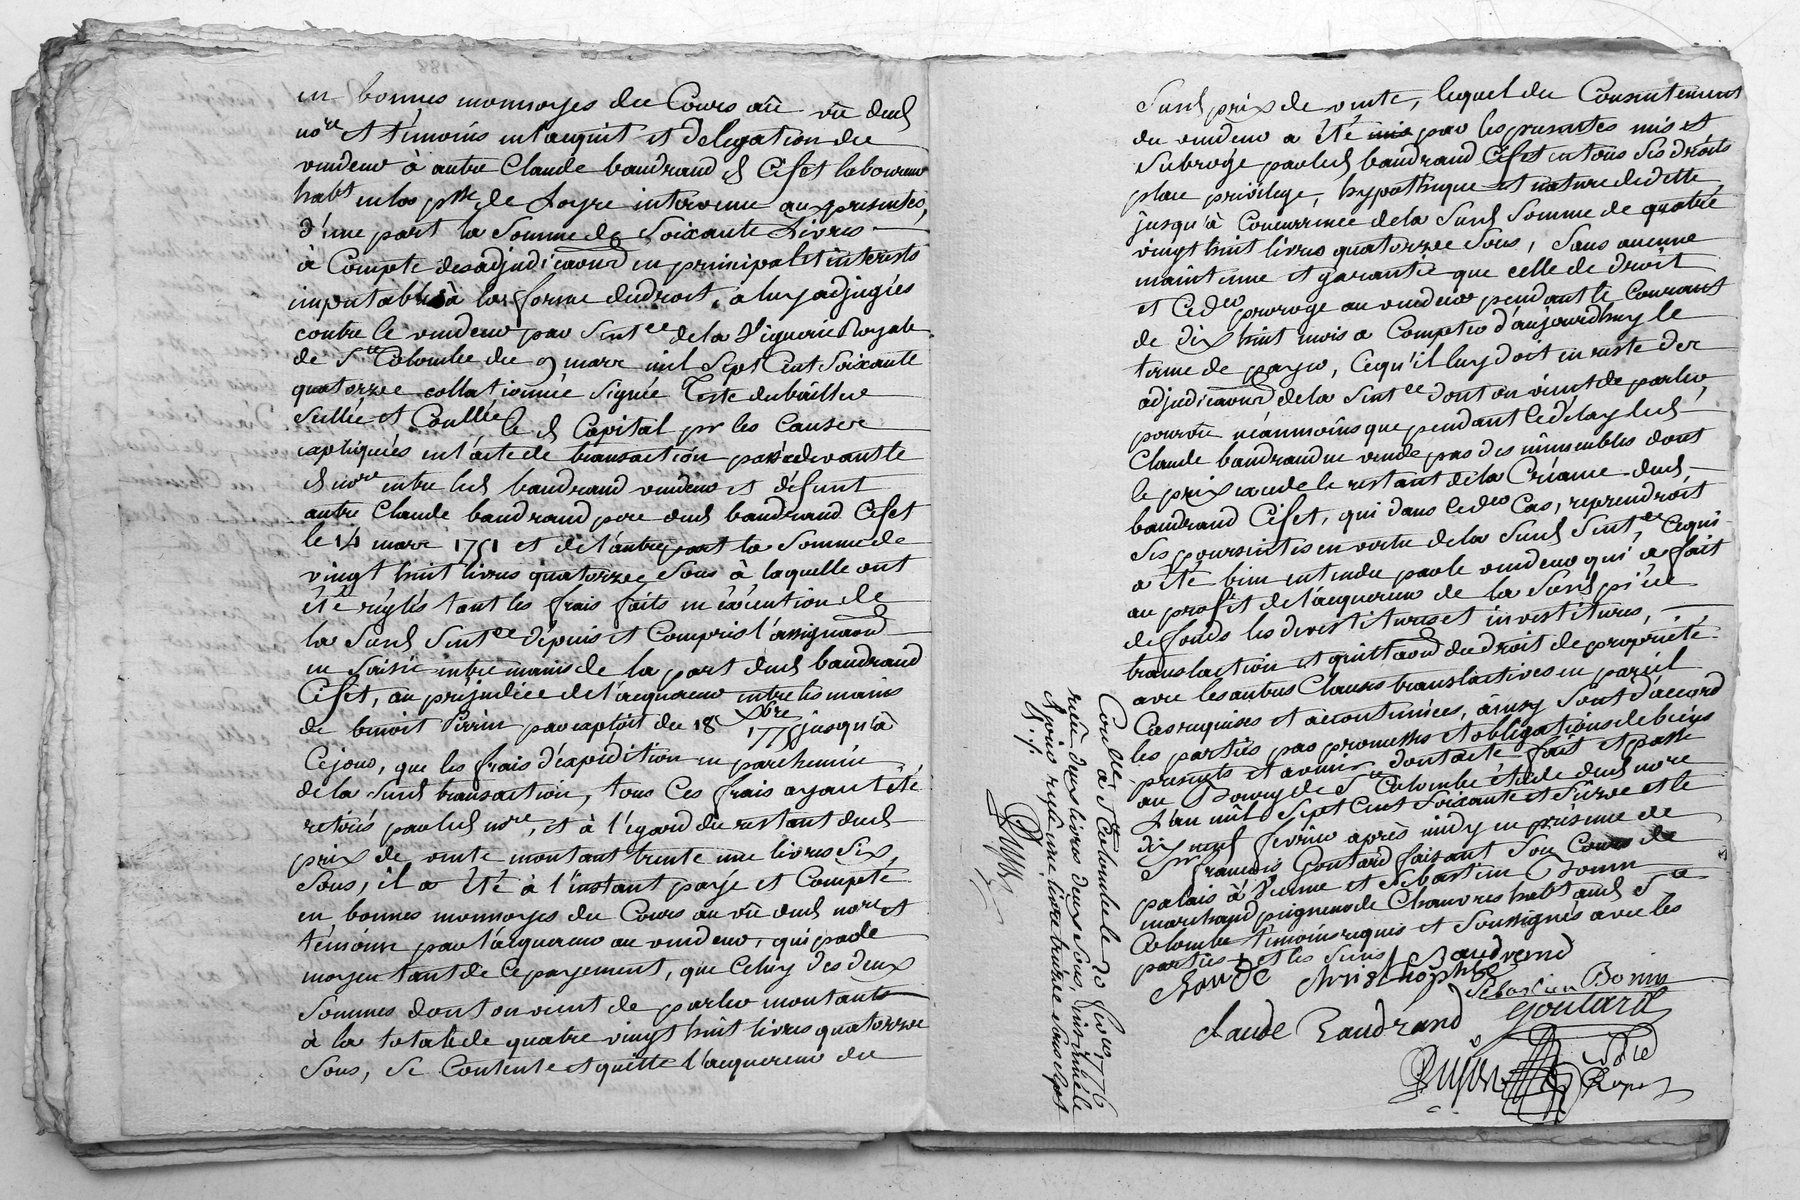 en bonnes monnoyes du Cours au vû dud
nore et témoins en l'acquit et délégation du
vendeur à autre Claude baudrand d Cifet laboureur
habt en la psse de Loyre intervenu aux presentes,
d'une part la Somme de Soixante Livres
à Compte des adjudicaons en principal et interests
imputable à la forme du droit, à luy adjugées
contre le vendeur par Sintce de la Viguerie Royale
de Ste Colombe du 9 mars mil Sept Cent Soixante
quatorze collationnée Signée Teste dubailleur
Sellée et Coullée led Capital pr les Causes
expliquées en l'acte de transaction passé devant le
d nore entre led baudrand vendeur et défunt
autre Claude baudrand pere dud baudrand Cifet
le 14 mars 1751 et de l'autre part la Somme de
vingt huit livres quatorze Sous à laquelle ont
été réglés tout les frais faits en éxécution de
la Susd Sintce depuis et Compris l'assignaon
en Saisie entre mains de la part dud baudrand
Cifet, au préjudice de l'acquereur entre les mains
de benoit Perrin par exploit du 18 Xbre 1775 jusqu'à
Cejour, que les frais d'expédition en parchemin
de la Susd transaction, tous Ces frais ayant été
retirés par led nore, et à l'égard du restant dud
prix de vente montant trente une livres Six
Sous, il a été à l'instant payé et Compté
en bonnes monnoyes du Cours au vû dud nore et
témoins par l'acquereur au vendeur, qui par le
moyen tant de ce payement, que Celuy des deux
Sommes dont on vient de parler montants
à la totale de quatre vingt huit livres quatorze
Sous, Se Contente et quitte l'acquereur du
Susd prix de vente, lequel du Consentement
du vendeur a été mis par les presentes mis et
Subrogé par led baudrand Cifet en tous Ses droits
place privilege, hypothèque et nature de dette
jusqu'à Concurrence de la Susd Somme de quatre
vingt huit livres quatorze Sous, Sans aucune
maintenue et garantie que celle de droit
et Ced proroge au vendeur pendant le Courant
de dix huit mois a Compter d'aujourd'huy le
terme de payer, Ce qu'il luy doit en reste des
adjudicaons de la Sintce dont on vient de parler,
pourvû néanmoins que pendant le délay led
Claude baudrand ne vende pas des immeubles dont
le prix excede le restant de la Créance dud
baudrand Cifet, qui dans ced Cas, reprendroit
Ses poursuites en vertu de la Susd Sintce, Ce qui
a été bien entendu par le vendeur qui a fait
au profit de l'acquereur de la Susd pièce
de fonds les devestitures et investitures,
translaction et quittaon du droit de proprieté
avec les autres Clauses translactives en pareil
Cas requises et accoutumées, ainsy Sont d'accord
les parties par promesses et obligations de biens
presents et avenir dont acte fait et passé
au Bourg de Ste Colombe étude dud nore
L'an mil Sept Cent Soixante et Seize et le
dix neuf fevrier après midy en présence de
Sr françois Goutard faisant Son Cours de
palais à Vienne et Sébastien Bonin
marchand peigneur de Chanvres habt aud Ste
Colombe témoins requis et Soussignés avec les
parties et les Suiv
Baudrand
Christhophle
Sebastien Bonin
Claude Baudrand
Goutard
Dujon
Coullé à Ste Colombe le 20 fevrier 1776
reçu deux livres deux Sous, insinué le
d jour reçu une livre treize Sous Sept
d.
Dujon